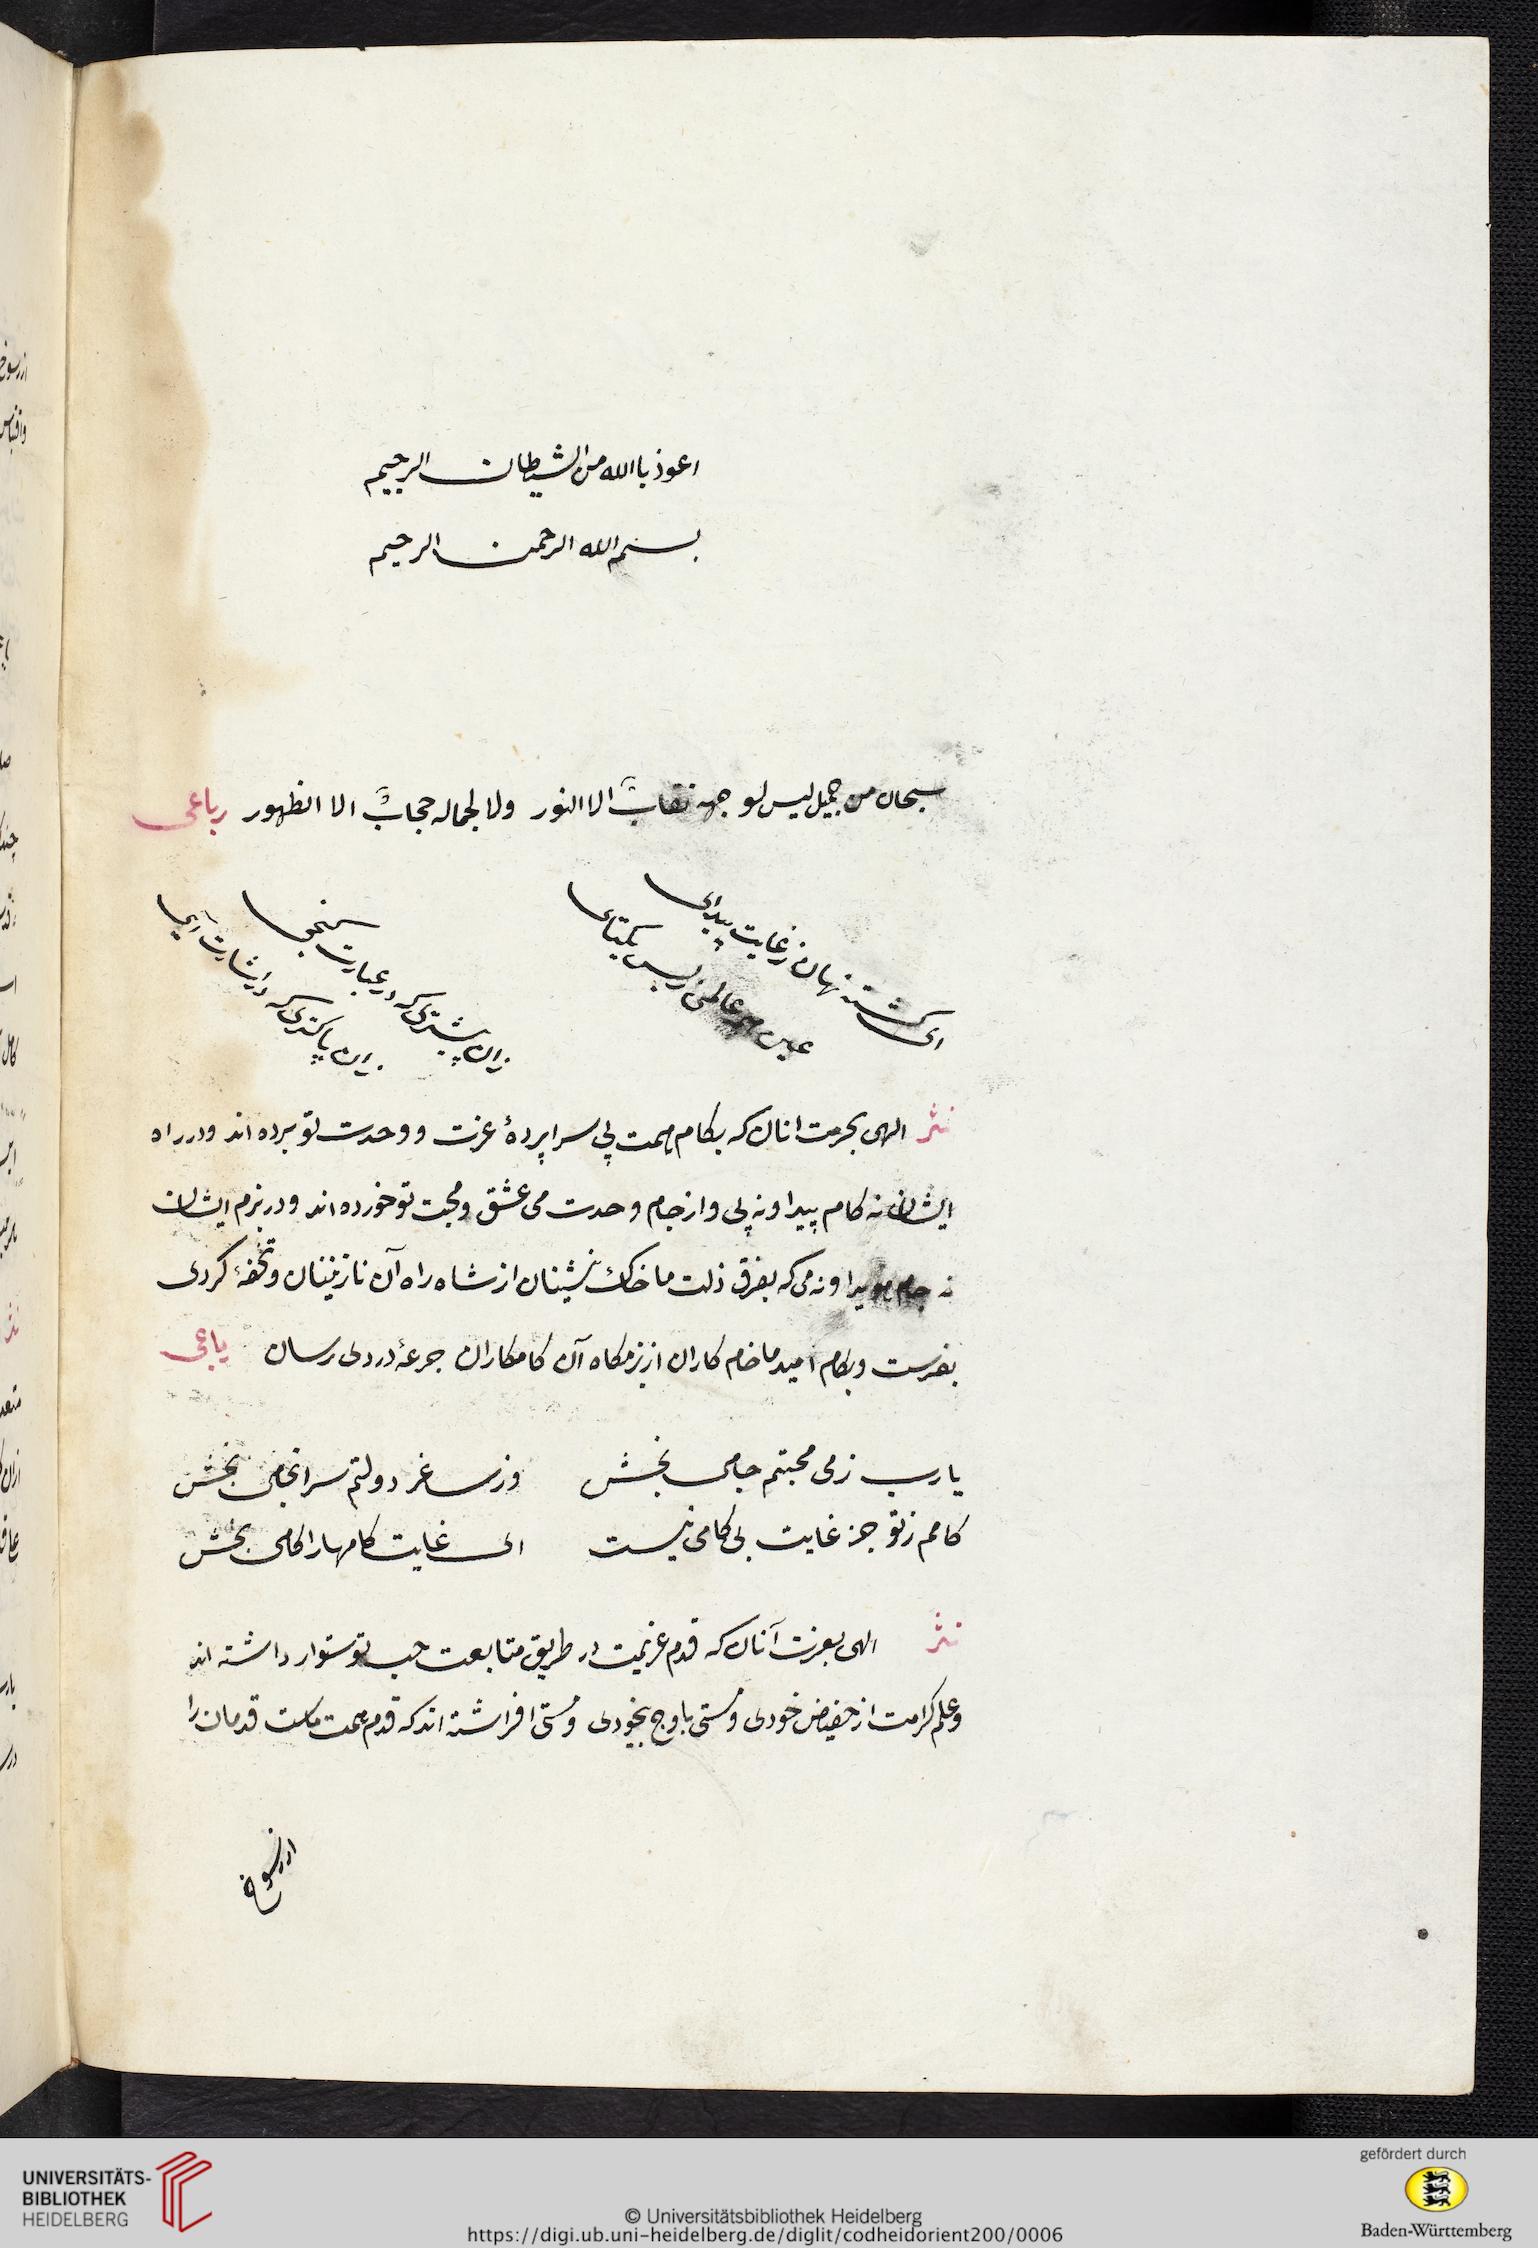 اعوذ باالله من الشیطان الرجیم
بسم الله الرحمن الرحیم
سبحان من جمیل لیس لوجهه نقابٌ الا النور ولا لجماله حجابٌ الا الظهور رباعی
ای کشته نهان ز غایت پیدایی
عین همه عالمی ز بس یکتایی
زان پیشتری که در عبارت سنجی
زان پاکتری که در اشارت آیی
نثر الهی بحرمت انان که بکام همت پی سراپردهٔ عزت و وحدت تو برده اند و در راه
ایشان نه کام پیدا و نه پی و از جام وحدت می عشق و محبت تو خورده اند و در بزم ایشان
نه جام هویدا و نه می که بفرق ذلت ما خاک نشینان از شاه راه آن نازنینان و تحفهٔ کردی
بفرست و بکام امید ما خام کاران از بزمکاه آن کامکاران جرعهٔ دردی رسان یاعی
یارب ز می محبتم جامی بخش وز ساغر دولتم سرانجامی بخش
کامم ز تو جز غایت بی کامی نیست ای غایت کامها را کامی بخش
نثر الهی بعزت آنان که قدم عزیمت در طریق متابعت حبیب تو ستوار داشته اند
و علم کرامت از حضیض خودی و مستی باوج بیخودی و مستی افراشته اند که قدم همت ماست قدمان را
از رسوخ
UNIVERSITÄTS-
BIBLIOTHEK
HEIDELBERG
© Universitätsbibliothek Heidelberg
https://digi.ub.uni-heidelberg.de/diglit/codheidorient200/0006
gefördert durch
Baden-Württemberg